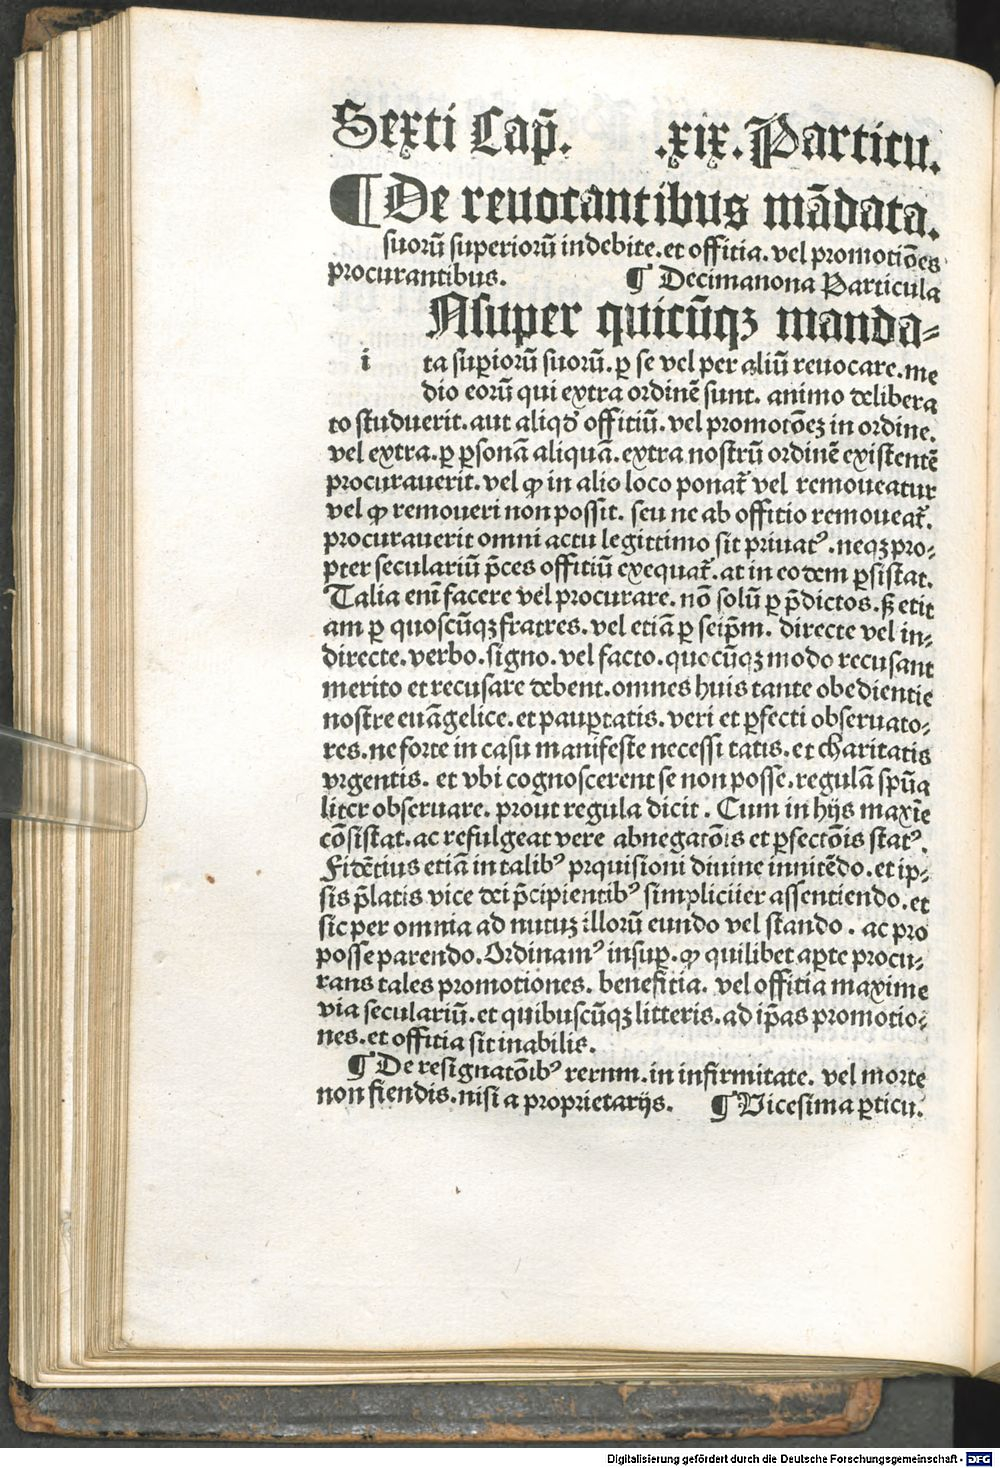 Sexti Cap̄. .xix. Particu.
¶ De reuocantibus mādata.
suorū superiorū indebite. et offitia. vel promotiōes
procurantibus. ¶ Decimanona Particula
Nsuper quicūqꝫ manda⸗
i ta suꝑiorū suorū. ꝑ se vel per aliū reuocare. me
dio eorū qui extra ordinē sunt. animo delibera
to studuerit. aut aliqd̛ offitiū. vel promotōeꝫ in ordine.
vel extra. ꝑ ꝑsonā aliquā. extra nostrū ordinē existentē
procurauerit. vel ꝙ in alio loco ponat᷑ vel remoueatur
vel ꝙ remoueri non possit. seu ne ab offitio remoueat᷑.
procurauerit omni actu legittimo sit priuatꝰ. neqꝫ pro⸗
pter seculariū p̄ces offitiū exequat᷑. at in eodem ꝑsistat.
Talia enī facere vel procurare. nō solū ꝑ p̄dictos. sꝫ etit
am ꝑ quoscūqꝫ fratres. vel etiā ꝑ seip̄m. directe vel in⸗
directe. verbo. signo. vel facto. quocūqꝫ modo recusant
merito et recusare debent. omnes huis tante obedientie
nostre euāgelice. et pauꝑtatis. veri et ꝑfecti obseruato⸗
res. ne forte in casu manifeste necessi tatis. et charitatis
vrgentis. et vbi cognoscerent se non posse. regulā sp̄ua
liter obseruare. prout regula dicit. Cum in hijs maxīe
cōsistat. ac refulgeat vere abnegatōis et ꝑfectōis statꝰ.
Fidētius etiā in talibꝰ prquisioni diuine innitēdo. et ip⸗
sis p̄latis vice dei p̄cipientibꝰ simpliciier assentiendo. et
sic per omnia ad nutuꝫ illorū eundo vel stando. ac pro
posse parendo. Ordinamꝰ insuꝑ. ꝙ quilibet aꝑte procu⸗
rans tales promotiones. benefitia. vel offitia maxime
via seculariū. et quibuscūqꝫ litteris. ad ip̄as promotio⸗
nes. et offitia sit inabilis.
¶ De resignatōibꝰ rerum. in infirmitate. vel morte
non fiendis. nisi a proprietarijs. ¶ Vicesima ꝑticu.
Digitalisierung gefördert durch die Deutsche Forschungsgemeinschaft - DFG